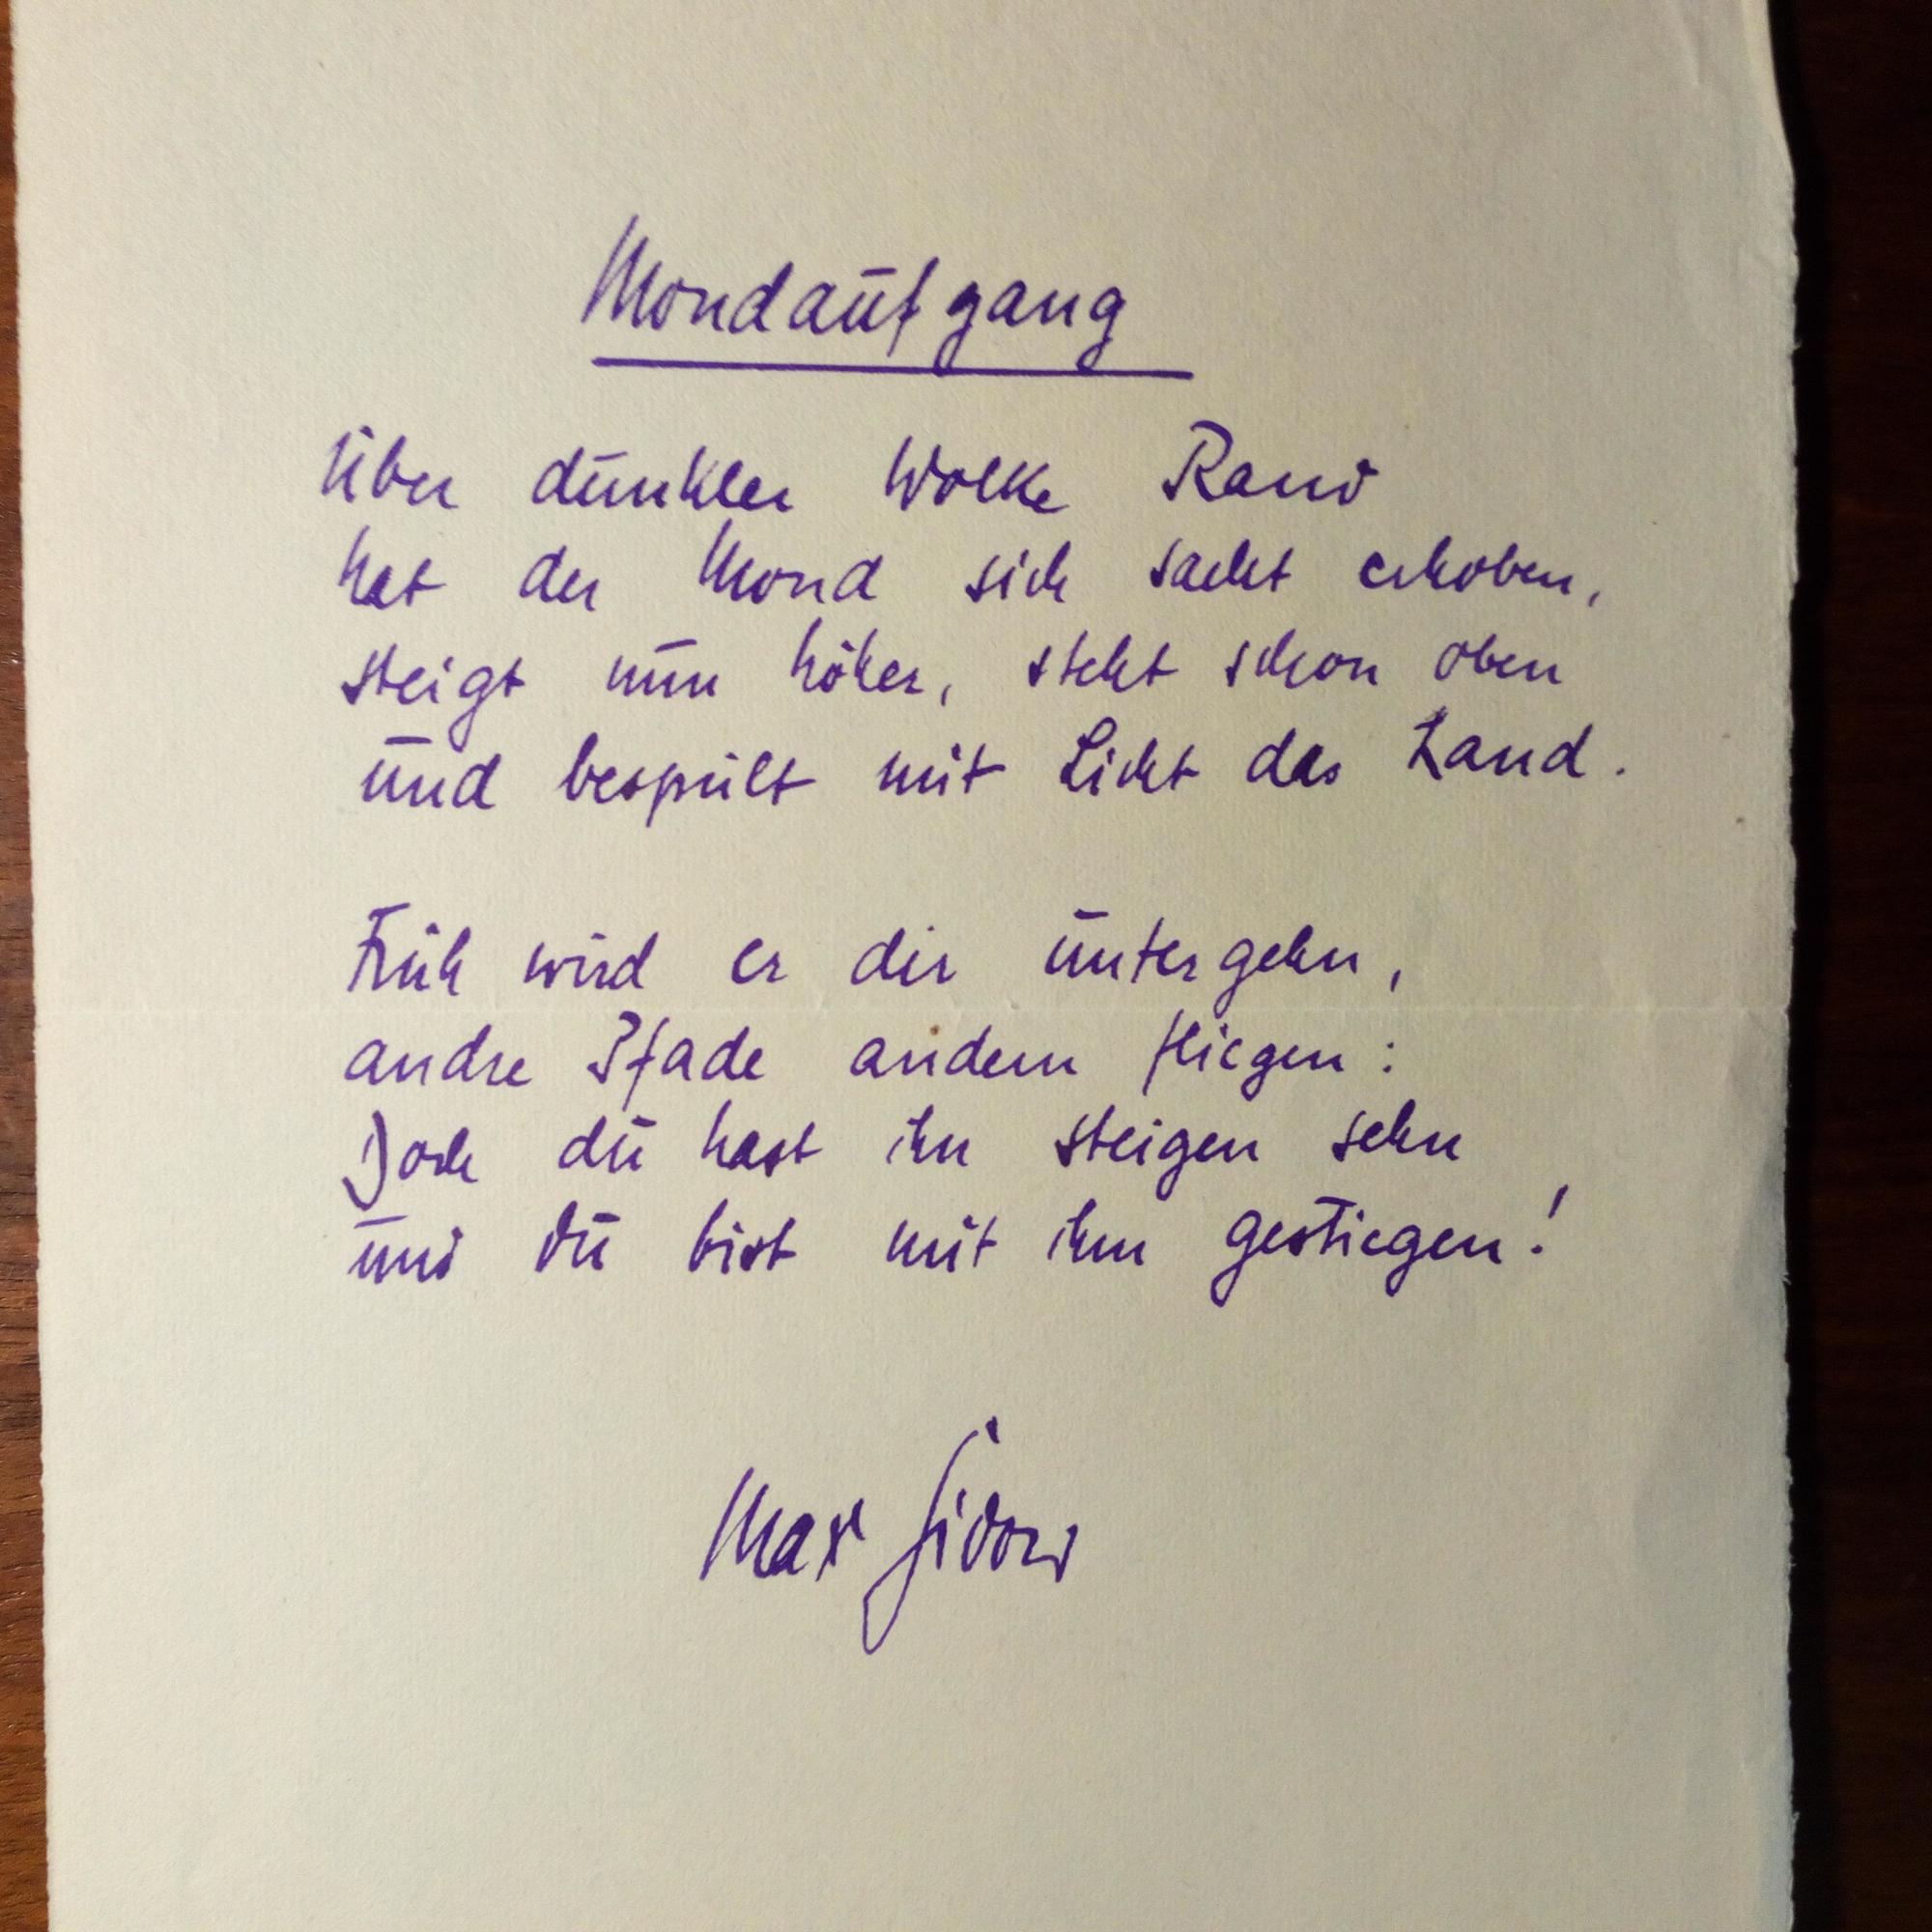 Mondaufgang
Über dunkler Wolke Rand
hat der Mond sich sacht erhoben,
steigt nun höher, steht schon oben
und bespült mit Licht das Land.
Früh wird er dir untergehn,
andre Pfade andern fliegen:
Doch du hast ihn steigen sehn
und du bist mit ihm gestiegen!
Max Sidow